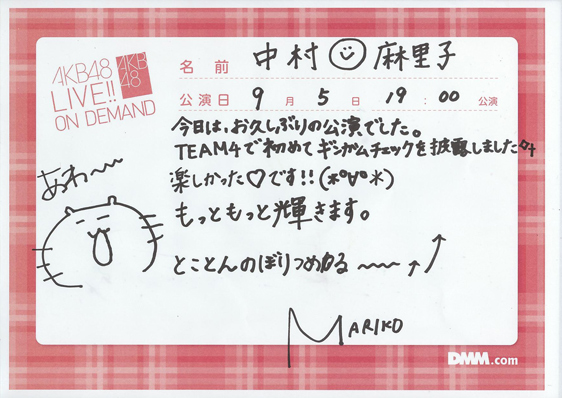 AKB48
LIVE!!
ON DEMAND
AKB
48
名前 中村 麻里子
公演日 9月 5日 19:00 公演
今日は、お久しぶりの公演でした。
TEAM4で初めてギンガムチェックを披露しました
楽しかった♡です!!(*°∀°*)
もっともっと輝きます。
あわ〜〜
とことんのぼりつめる〜〜↑↑
MARIKO
DMM.com